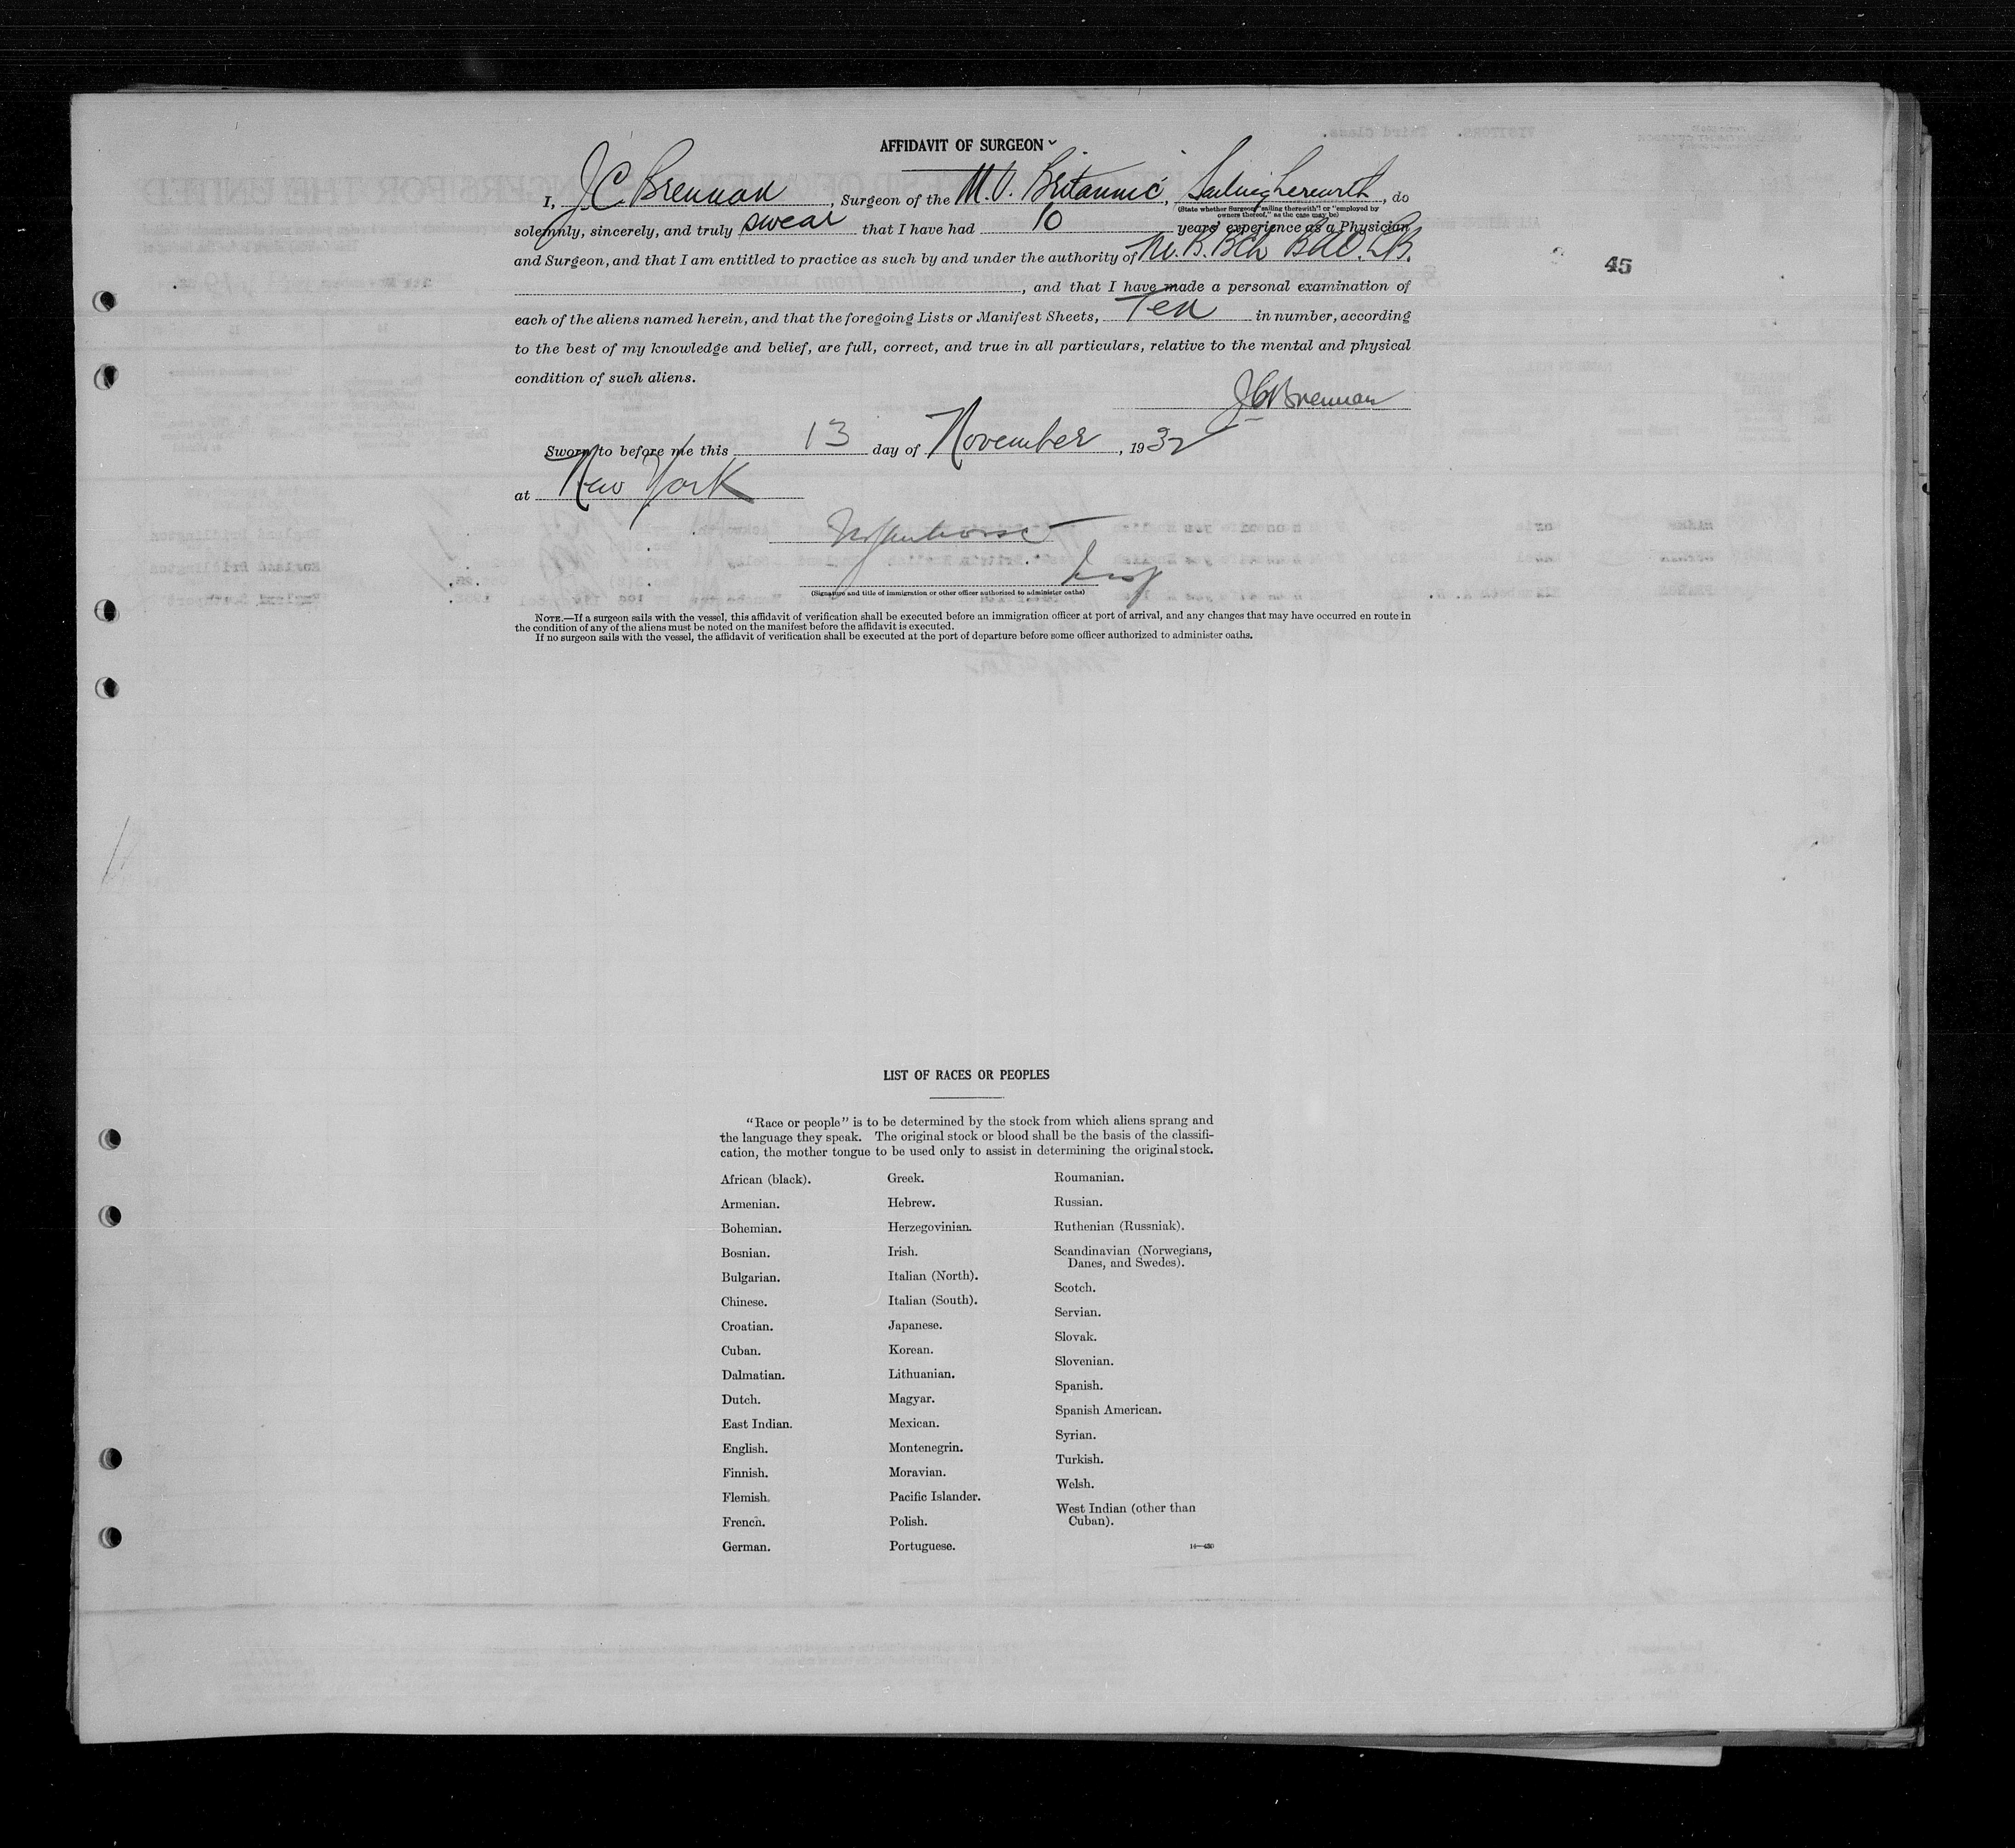 AFFIDAVIT OF SURGEON
I, J.C. Brennan, Surgeon of the M.V. Britannic, Sailing therewith, do
(State whether Surgeon "sailing therewith" or "employed by
owners thereof," as the case may be)
solemnly, sincerely, and truly swear that I have had 10 years' experience as a Physician
and Surgeon, and that I am entitled to practice as such by and under the authority of M.B. BCh BAO.
45
, and that I have made a personal examination of
each of the aliens named herein, and that the foregoing Lists or Manifest Sheets, Ten in number, according
to the best of my knowledge and belief, are full, correct, and true in all particulars, relative to the mental and physical
condition of such aliens.
J C Brennan
Sworn to before me this 13 day of November, 1932
at New York
Insp
(Signature and title of immigration or other officer authorized to administer oaths)
NOTE.—If a surgeon sails with the vessel, this affidavit of verification shall be executed before an immigration officer at port of arrival, and any changes that may have occurred en route in
the condition of any of the aliens must be noted on the manifest before the affidavit is executed.
If no surgeon sails with the vessel, the affidavit of verification shall be executed at the port of departure before some officer authorized to administer oaths.
LIST OF RACES OR PEOPLES
"Race or people" is to be determined by the stock from which aliens sprang and
the language they speak. The original stock or blood shall be the basis of the classifi-
cation, the mother tongue to be used only to assist in determining the original stock.
African (black).
Armenian.
Bohemian.
Bosnian.
Bulgarian.
Chinese.
Croatian.
Cuban.
Dalmatian.
Dutch.
East Indian.
English.
Finnish.
Flemish.
French.
German.
Greek.
Hebrew.
Herzegovinian.
Irish.
Italian (North).
Italian (South).
Japanese.
Korean.
Lithuanian.
Magyar.
Mexican.
Montenegrin.
Moravian.
Pacific Islander.
Polish.
Portuguese.
Roumanian.
Russian.
Ruthenian (Russniak).
Scandinavian (Norwegians,
Danes, and Swedes).
Scotch.
Servian.
Slovak.
Slovenian.
Spanish.
Spanish American.
Syrian.
Turkish.
Welsh.
West Indian (other than
Cuban).